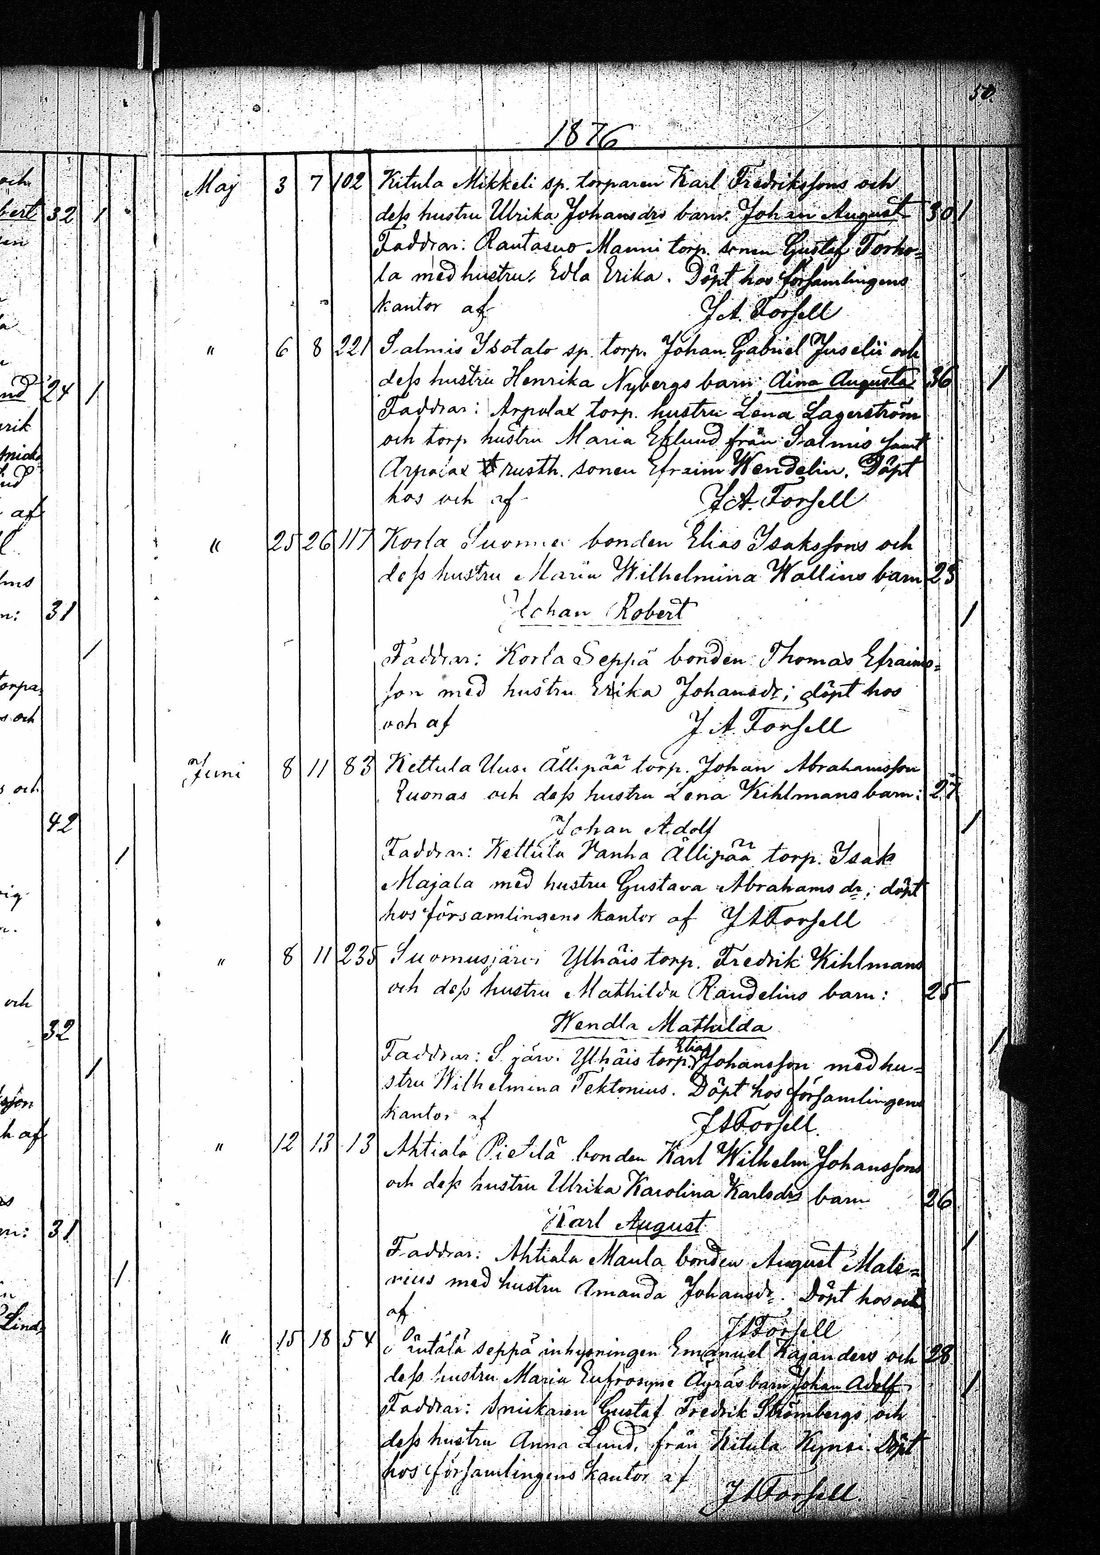 50.
1876
Maj 3 7 102 Kitula Mikkeli sp. torparen Karl Fredrikssons och
bert 32 1 dess hustru Ulrika Johansdrs barn: Johan August 30 1
Faddrar: Rautasuo Manni torp. sonen Gustaf Torho=
la med hustru Edla Erika. Döpt hos församlingens
kantor af J. A. Forsell
" 6 8 221 Salmis Isotalo sp. torp. Johan Gabriel Juselii och
24 1 dess hustru Henrika Nybergs barn: Aina Augusta 36 1
Faddrar: Arpalax torp. hustru Lena Lagerström
och torp. hustru Maria Eklund från Salmis samt
Arpalax rusth. sonen Efraim Wendelin. Döpt
hos och af J. A. Forsell
" 25 26 117 Korla Suonnen bonden Elias Isakssons och
dess hustru Maria Wilhelmina Wallins barn 23
31 Johan Robert 1
1 Faddrar: Korla Seppä bonden Thomas Efraims=
son med hustru Erika Johansdr; döpt hos
och af J A Forsell
Juni 8 11 83 Kettula Uusi Ällipää torp. Johan Abrahamsson
Ruonas och dess hustru Lena Kihlmans barn: 27
42 Johan Adolf 1
1 Faddrar: Kettula Vanha Ällipää torp. Isak
Majala med hustru Gustava Abrahamsdr; döpt
hos församlingens kantor af J A Forsell
" 8 11 235 Suomusjärvi Ylhäis torp. Fredrik Kihlmans
och dess hustru Mathilda Randelins barn: 25
och
32 Wendla Mathilda 1
1 Faddrar: S. järvi Ylhäis torp. Elias Johansson med hu=
stru Wilhelmina Tektonius. Döpt hos församlingens
kantor af J A Forsell
" 12 13 13 Ahtiala Pietilä bonden Karl Wilhelm Johanssons
och dess hustru Ulrika Karolina Karlsdrs barn 26
31 Karl August 1
1 Faddrar: Ahtiala Maula bonden August Male=
rius med hustru Amanda Johansdr. Döpt hos och
af J A Forsell
" 15 18 54 seppä inhysningen Emanuel Kajanders och 28
dess hustru Maria Eufrosyne Äyräs barn Johan Adolf 1
Faddrar: Snickaren Gustaf Fredrik Strömbergs och
dess hustru Anna Lund, från Kitula Kynsi. Döpt
hos församlingens kantor af
J A Forsell.